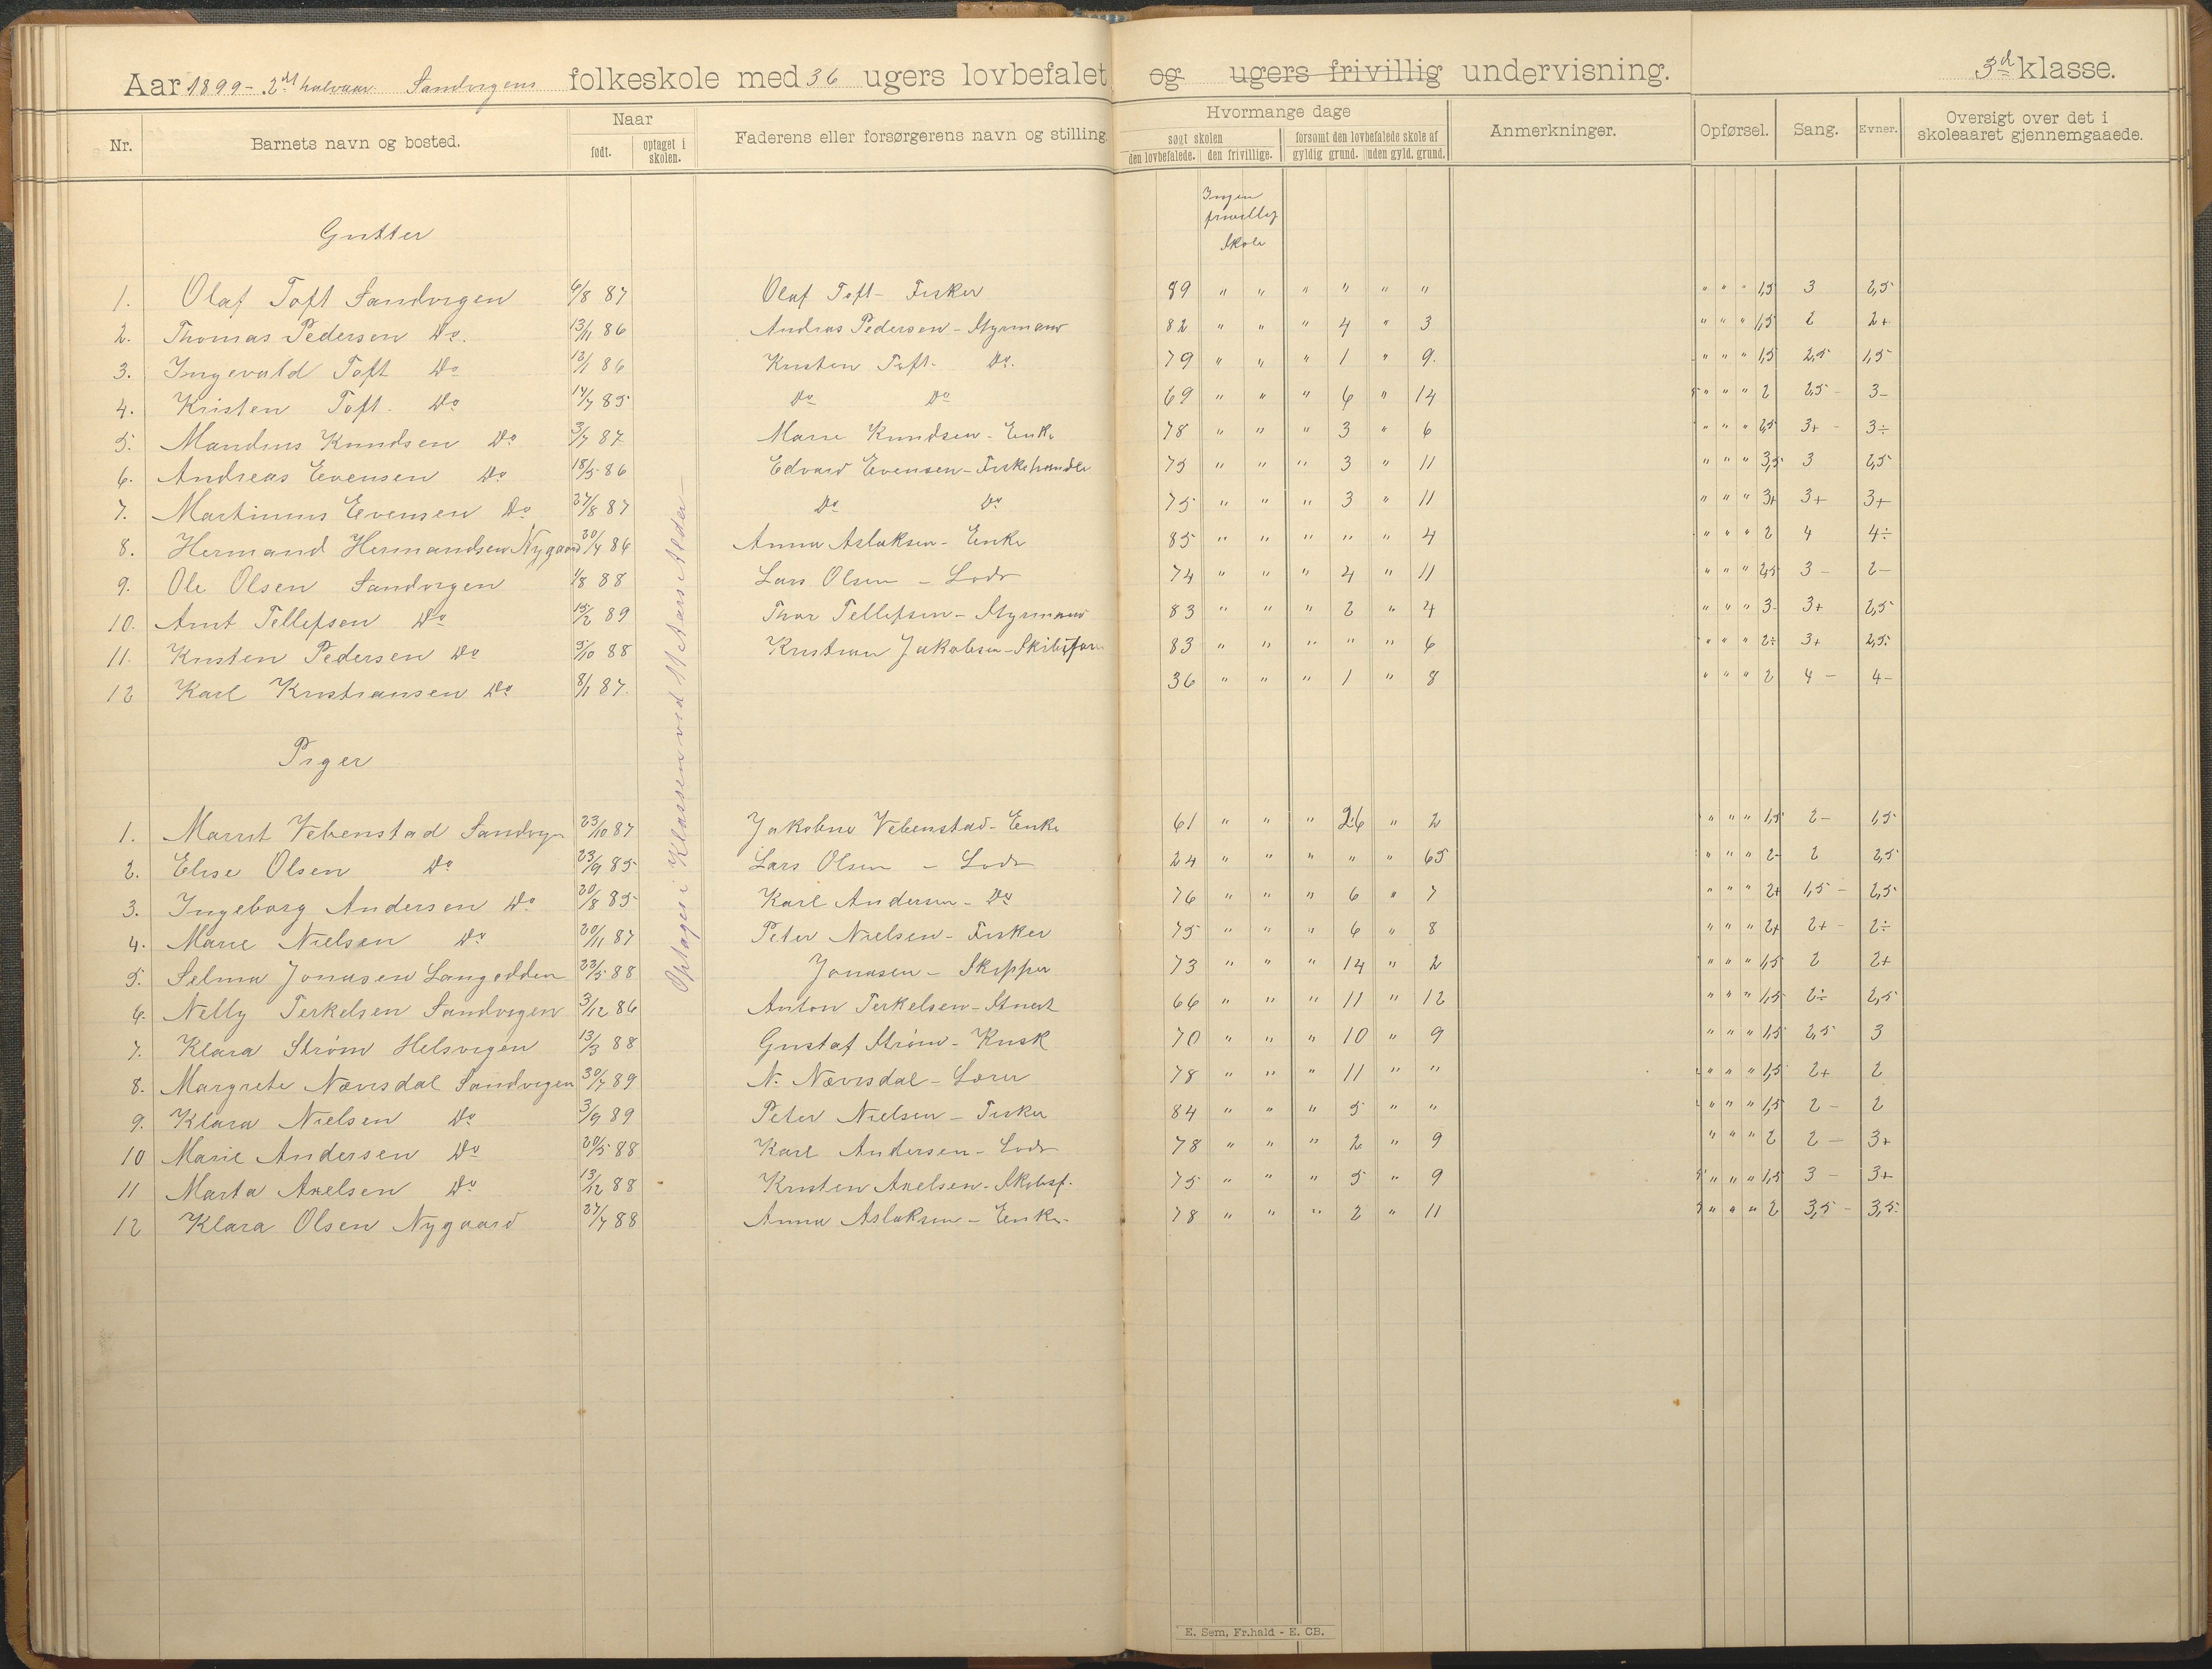 Aar 1899 - 2det halvaar. Sandvigens folkeskole med 36 ugers lovbefalet og ugers frivillig undervisning. 3d klasse.
Nr. Barnets navn og bosted. Naar født. optaget i skolen. Faderens eller forsørgerens navn og stilling. Hvormange dage søgt skolen den lovbefalede. den frivillige. forsømt den lovbefalede skole af gyldig grund. uden gyld. grund. Anmerkninger. Opførsel. Sang. Evner. Oversigt over det i skoleaaret gjennemgaaede.
Ingen
frivillig
Skole
Gutter
1. Olaf Toft Sandvigen 6/8 87 Olaf Toft - Fisker 89 " " " " " " " " " 1,5 3 2,5
2. Thomas Pedersen Do. 13/11 86 Andreas Pedersen - Styrmand 82 " " " 4 " 3 " " " 1,5 2 2+
3. Ingevald Toft Do 12/1 86 Kristen Toft. Do. 79 " " " 1 " 9. " " " 1,5 2,5 1,5
4. Kristen Toft. Do 14/7 85 Do Do 69 " " " 6 " 14 " " " 2 2,5 - 3-
5. Mandius Knudsen Do 3/7 87 Marie Knudsen - Enke 78 " " " 3 " 6 " " " 2,5 3+ - 3÷
6. Andreas Evensen Do 18/5 86 Edvard Evensen - Fiskehandler 75 " " " 3 " 11 " " " 3,5 3 2,5
7. Martinius Evensen Do 27/8 87 Do Do 75 " " " 3 " 11 " " " 3+ 3+ 3+
8. Hermand Hermandsen Nygaard 20/4 86 Anna Aslaksen - Enke 85 " " " " " 4 " " " 2 4 4÷
9. Ole Olsen Sandvigen 1/8 88 Lars Olsen - Lods 74 " " " 4 " 11 " " " 2,5 3 - 2-
10. Arnt Tellefsen Do 15/2 89 Thor Tellefsen - Styrmand 83 " " " 2 " 4 " " " 3- 3+ 2,5
11. Kristen Pedersen Do 5/10 88 Kristian Jakobsen - Skibsfør 83 " " " " " 6 " " " 2÷ 3+ 2,5
12 Karl Kristiansen Do 8/1 87. 36 " " " 1 " 8 " " " 2 4 - 4-
Optages i Klassen ved 11te Aars Alder -
Piger
1. Marit Vebenstad Sandvign 23/10 87 Jakobine Vebenstad - Enke 61 " " " 26 " 2 " " " 1,5 2- 1,5
2. Elise Olsen Do 23/9 85 Lars Olsen - Lods 24 " " " " " 65 " " " 2- 2 2,5
3. Ingeborg Andersen Do 20/8 85 Karl Andersen - Do 76 " " " 6 " 7 " " " 2+ 1,5 - 2,5
4. Marie Nielsen Do 20/11 87 Peter Nielsen - Fisker 75 " " " 6 " 8 " " " 2+ 2+ - 2÷
5. Selma Jonasen Langodden 22/5 88 Jonasen - Skipper 73 " " " 14 " 2 " " " 1,5 2 2+
6. Nelly Terkelsen Sandvigen 3/12 86 Anton Terkelsen - Stuert 66 " " " 11 " 12 " " " 1,5 2÷ 2,5
7. Klara Strøm Helsvigen 13/3 88 Gustaf Strøm - Kusk 70 " " " 10 " 9 " " " 1,5 2,5 3
8. Margrete Nævisdal Sandvigen 30/7 89 N. Nævisdal - Lærer 78 " " " 11 " " " " " 1,5 2+ 2
9. Klara Nielsen Do 3/9 89 Peter Nielsen - Fisker 84 " " " 5 " " " " " 1,5 2 - 2
10 Marie Andersen Do 20/5 88 Karl Andersen - Lods 78 " " " 2 " 9 " " " 2 2 - 3+
11 Marta Axelsen Do 13/12 88 Kristen Axelsen - Skibsf. 75 " " " 5 " 9 " " " 1,5 3 - 3+
12 Klara Olsen Nygaard 27/7 88 Anna Aslaksen - Enke. 78 " " " 2 " 11 " " " 2 3,5 - 3,5
E. Sem, Fr.hald - E. CB.